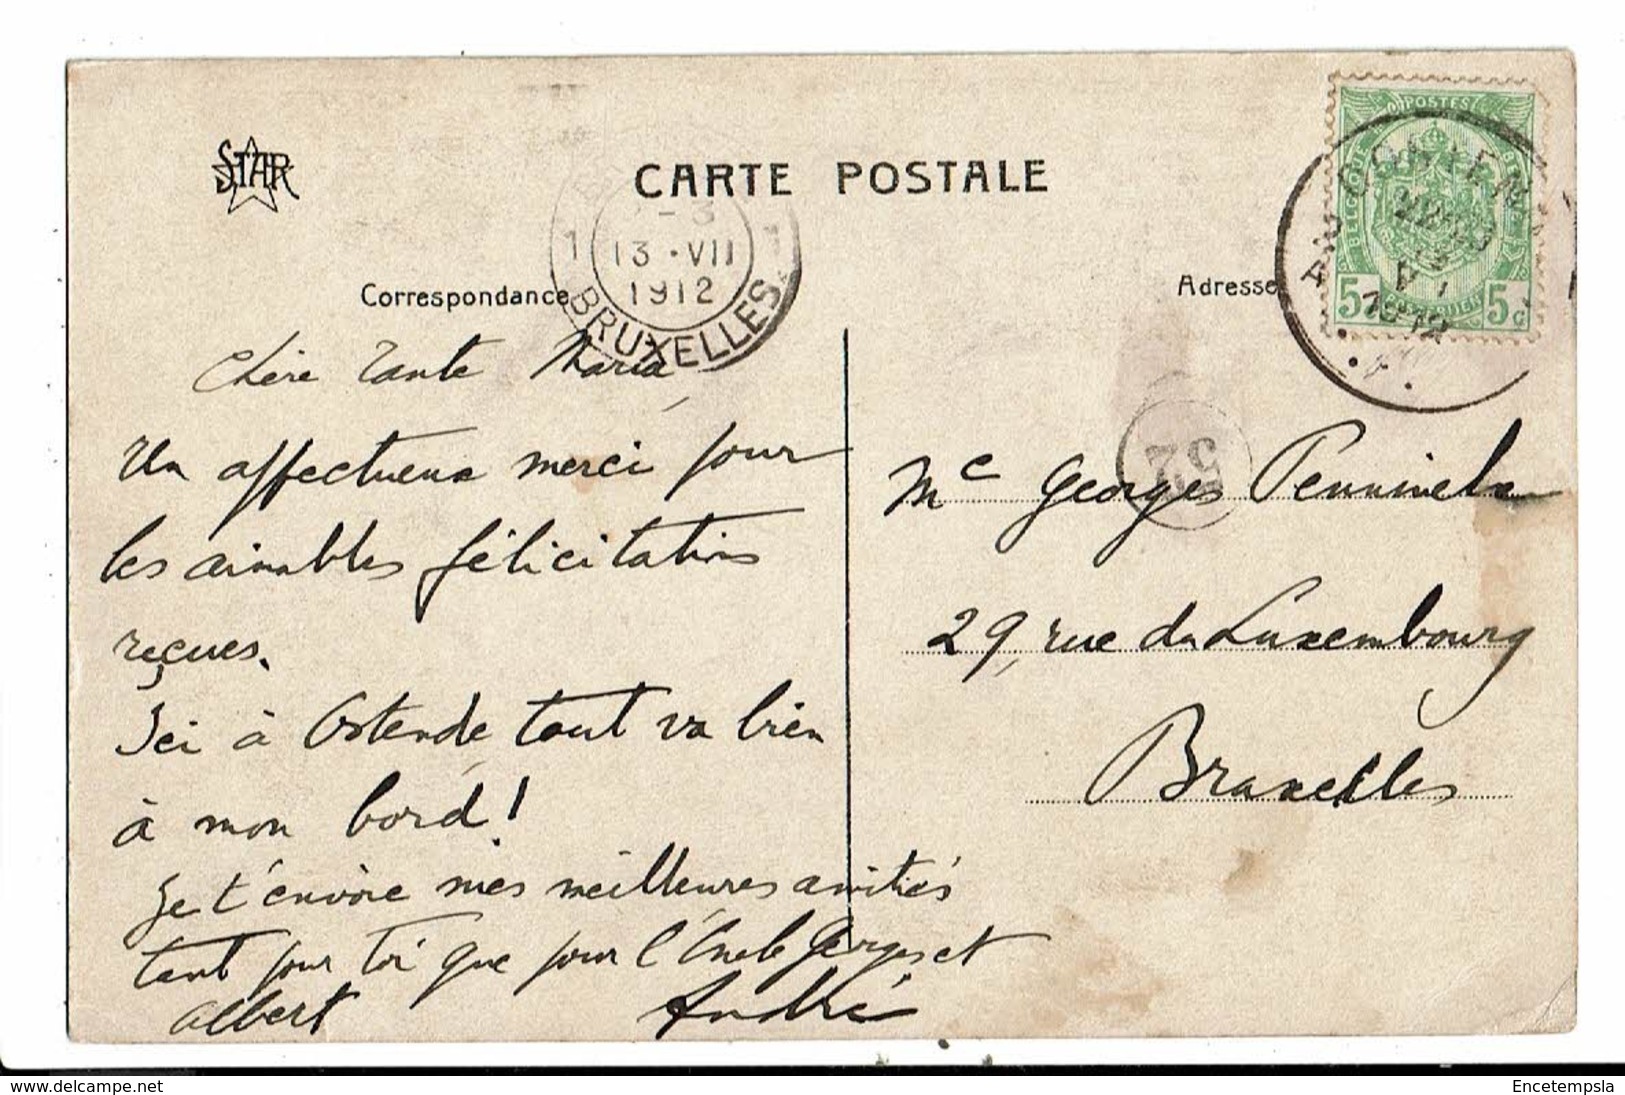 STAR
CARTE POSTALE
Correspondance
Adresse
13 · VII
1912
BRUXELLES
1
1
POSTES
BELGIQUE
5
5 c
1912
Chère Tante Maria
Un affectueux merci pour
les aimables félicitations
reçues.
Ici à Ostende tout va bien
à mon bord!
Je t'envoie mes meilleures amitiés
tant pour toi que pour l'Oncle Georges et
Albert André
52
Mᵉ Georges
29, rue du Luxembourg
Bruxelles
www.delcampe.net
Encetempsla